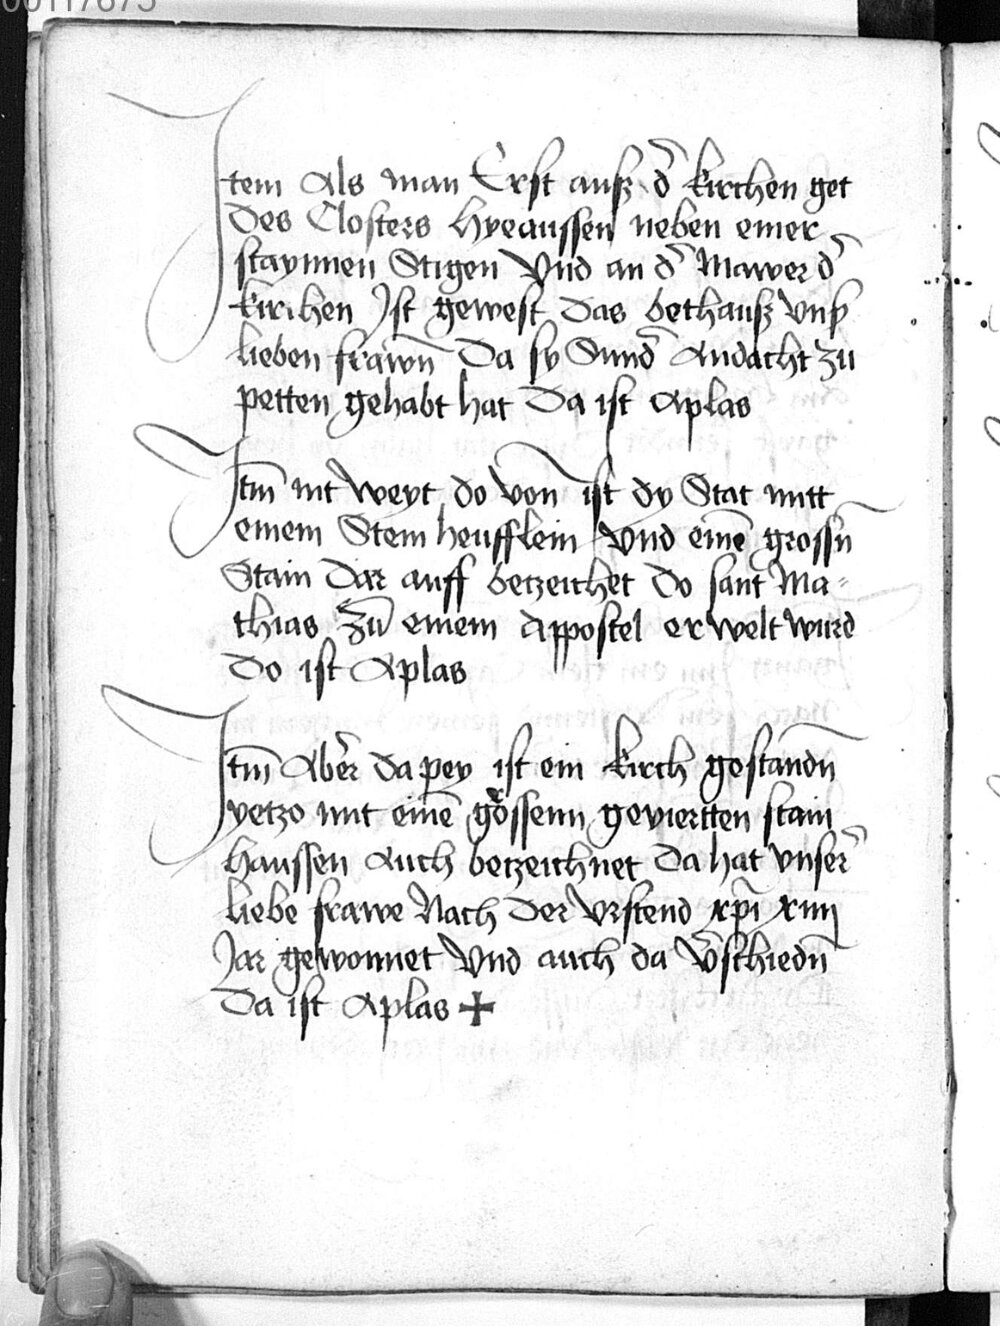 00117675
Jtem Als man Erst auß d̕ kirchen get
des Closters hyeaussen neben einer
staynnen Stigen Vnd an d̕ Mawer d̕
kirchen Jst gewest das bethauß vnß
lieben frawn̄ Da sy Sund̕ Andacht zu
petten gehabt hat Da ist Aplas
Jtm̄ nit weyt do von ist dy Stat mitt
einem Stein heufflein Vnd einē grossn̄
Stain Dar auff betzeichet Do sant Ma-
thias zu einem Appostel erwelt wurd
Do ist Aplas
Jtm̄ Aber da pey ist ein kirch gestandn̄
yetzo mit einē grossenn geviertten stain
haussen Auch betzeichnet Da hat vnser
liebe frawe Nach der Vrstend xp̄i xiiij
Jar gewonnet Vnd auch da v̕schiedn̄
Da ist Aplas +